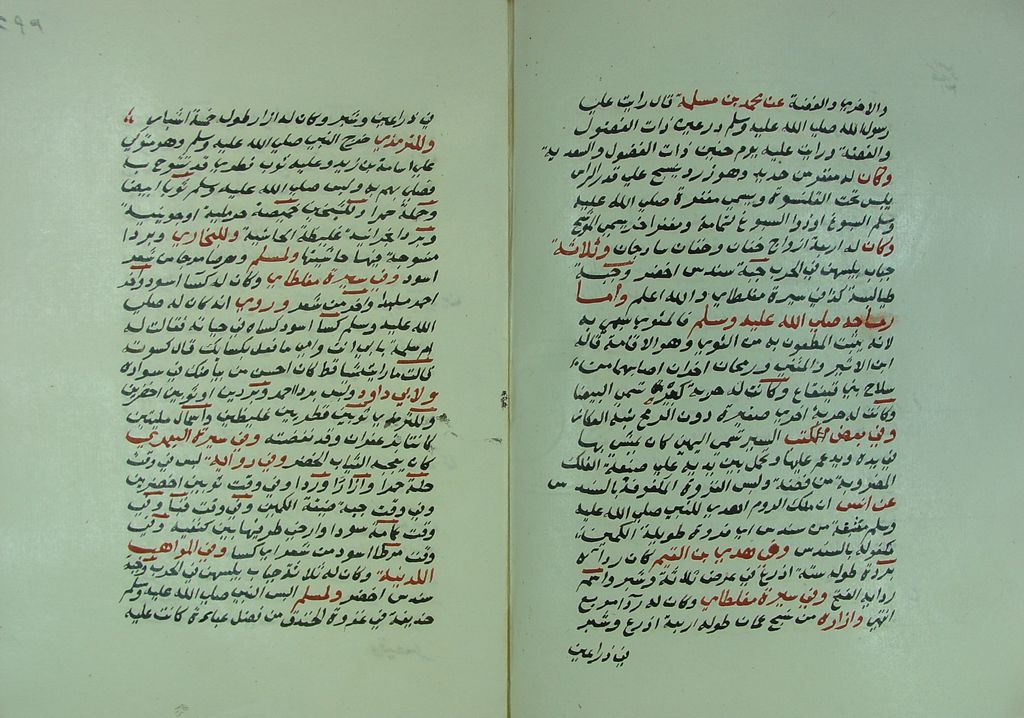 والاخري والفضة عن محمد بن مسلمة قال رايت علي
رسول الله صلي الله عليه وسلم درعين ذات الفضول
والفضة ورايت عليه يوم حنين ذات الفضول والسعدية
وكان له مغفر من حديد وهو زرد ينسج علي قدر الراس
يلبس تحت القلنسوة ويسمي مغفرة صلي الله عليه
وسلم السبوغ اوذوا السبوغ لتمامه ومغفر اخر يسمي الموشح
وكان له اربعة ازواج خفان وخفان ساذجان وثلاثة
جباب يلبسهن في الحرب جبة سندس اخضر وجبة
طيالسة كذا في سيرة مغلطاي والله اعلم وأما
رماحه صلي الله عليه وسلم فالمثوي سمي به
لانه يثبت المطعون به من الثوي وهو الاقامة قاله
ابن الاثير والمثني ورمحان اخران اصابهما من
سلاح بني قينقاع وكانت له حربة كبيرة تسمي البيضا
وكانت له حربة اخري صغيرة دون الرمح شبه العكاز
وفي بعض الكتب السير تسمي اليمن كان يمشي بها
في يده ويدعم عليها وتحمل بين يديه علي صنعة الفلك
المضروبة من فضة ولبس الفروة المكفوفة بالسندس
عن انس ان ملك الروم اهدي للنبي صلي الله عليه
وسلم مستقة من سندس اي فروة طويلة الكمين
مكفوفة بالسندس وفي هدي بن القيم كان رداؤه
بردة طوله ستة اذرع في عرض ثلاثة وشبر واسم
ردايه الفتح وفي سيرة مغلطاي وكان له ردا مربع
انتهي وازاره من نسج عمان طوله اربعة اذرع وشبر
في ذراعين
في ذراعين وشبر وكان له ازار طول خمسة اشبار
وللترمذي خرج النبي صلي الله عليه وسلم وهو متوكي
علي اسامة بن زيد وعليه ثوب قطري قد توشح به
فصلي بهم به ولبس صلي الله عليه وسلم ثوبا ابيضا
وحلة حمرا وللشيخين خميصة حرملية او جونية
وبردا نجرانية غليظة الحاشية وللبخاري وبردا
منسوجة فيها حاشيتها ولمسلم ومرطا مرحل من شعر
اسود وفي سيرة مغلطاي وكان له كسا اسود واخر
احمر ملبد واخر من شعر وروي انه كان له صلي
الله عليه وسلم كسا اسود كساه في حياته فقالت له
ام سلمة بابي انت وامي ما فعل كساك قال كسوته
قالت ما رايت شيا قط كان احسن من بياضك في سواده
ولابي داود ولبس بردا احمر وبردين او ثوبين اخضرين
وللترمذي ثوبين قطريين غليظين واسمال مليتين
كانتا بزعفران وقد نفضته وفي سيرة اليعمري
كان يعجبه الثياب الخضر وفي رواية لبس في وقت
حلة حمرا وازارا وردا وفي وقت ثوبين اخضرين
وفي وقت جبة ضيقة الكمين وفي وقت قبا وفي
وقت عمامة سودا وارخي طرفيها بين كتفيه وفي
وقت مرطا اسود من شعر اي كسا وفي المواهب
اللدنية وكان له ثلاثة جباب يلبسهن في الحرب وجبة
سندس اخضر ولمسلم البس النبي صلي الله عليه وسلم
حذيفة في غزوة الخندق من فضل عباءة كانت عليه